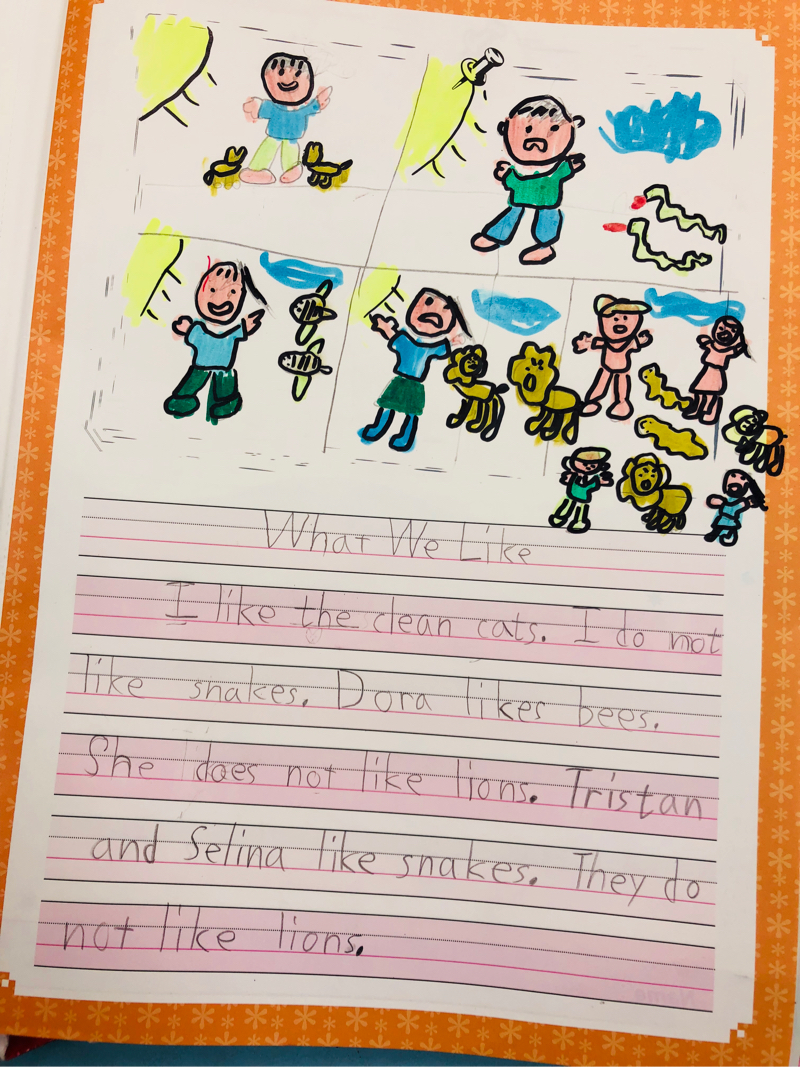 What We Like
I like the clean cats. I do not
like snakes. Dora likes bees.
She does not like lions. Tristan
and Selina like snakes. They do
not like lions.